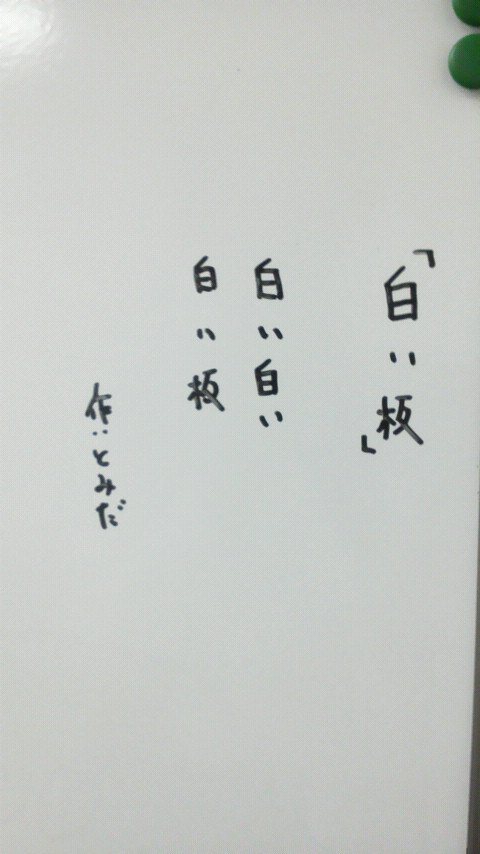 「白い板」
白い白い
白い板
作:とみだ